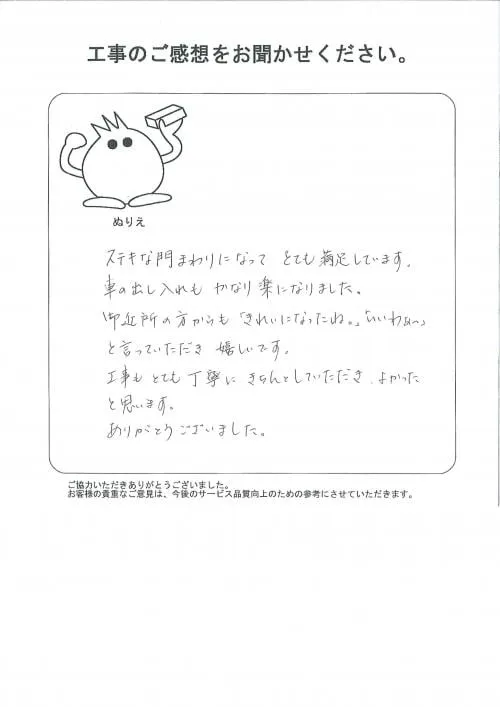 工事のご感想をお聞かせください。
ぬりえ
ステキな門まわりになって とても満足しています。
車の出し入れも かなり楽になりました。
御近所の方からも「きれいになったね。」「いいわぁ〜」
と言っていただき 嬉しいです。
工事も とても 丁寧に きちんとしていただき、よかった
と思います。
ありがとうございました。
ご協力いただきありがとうございました。
お客様の貴重なご意見は、今後のサービス品質向上のための参考にさせていただきます。